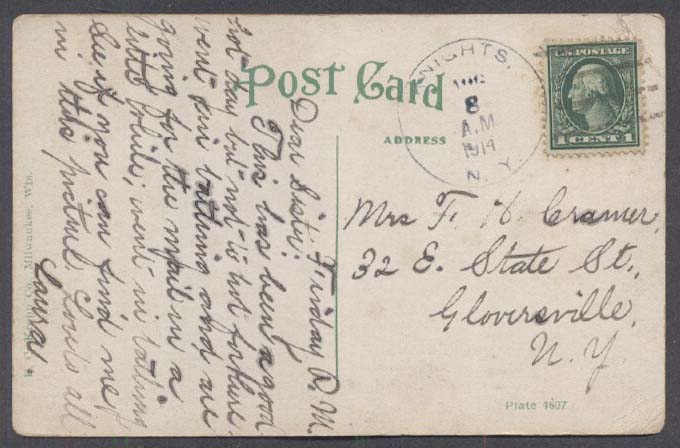 POST CARD
ADDRESS
KNIGHTS,
AUG
8
A.M
1914
N. Y.
U.S. POSTAGE
1 CENT 1
Mrs F. H. Cramer,
32 E. State St.,
Gloversville,
N. Y.
Plate 4607
Friday P. M.
Dear Sister:
This has been a good
hot day but not to hot for here.
went in bathing and are
going for the mail in a
little while, went in bathing
See if you can find me
in this picture, Love to all
Laura.
Co., Milwaukee, Wis.